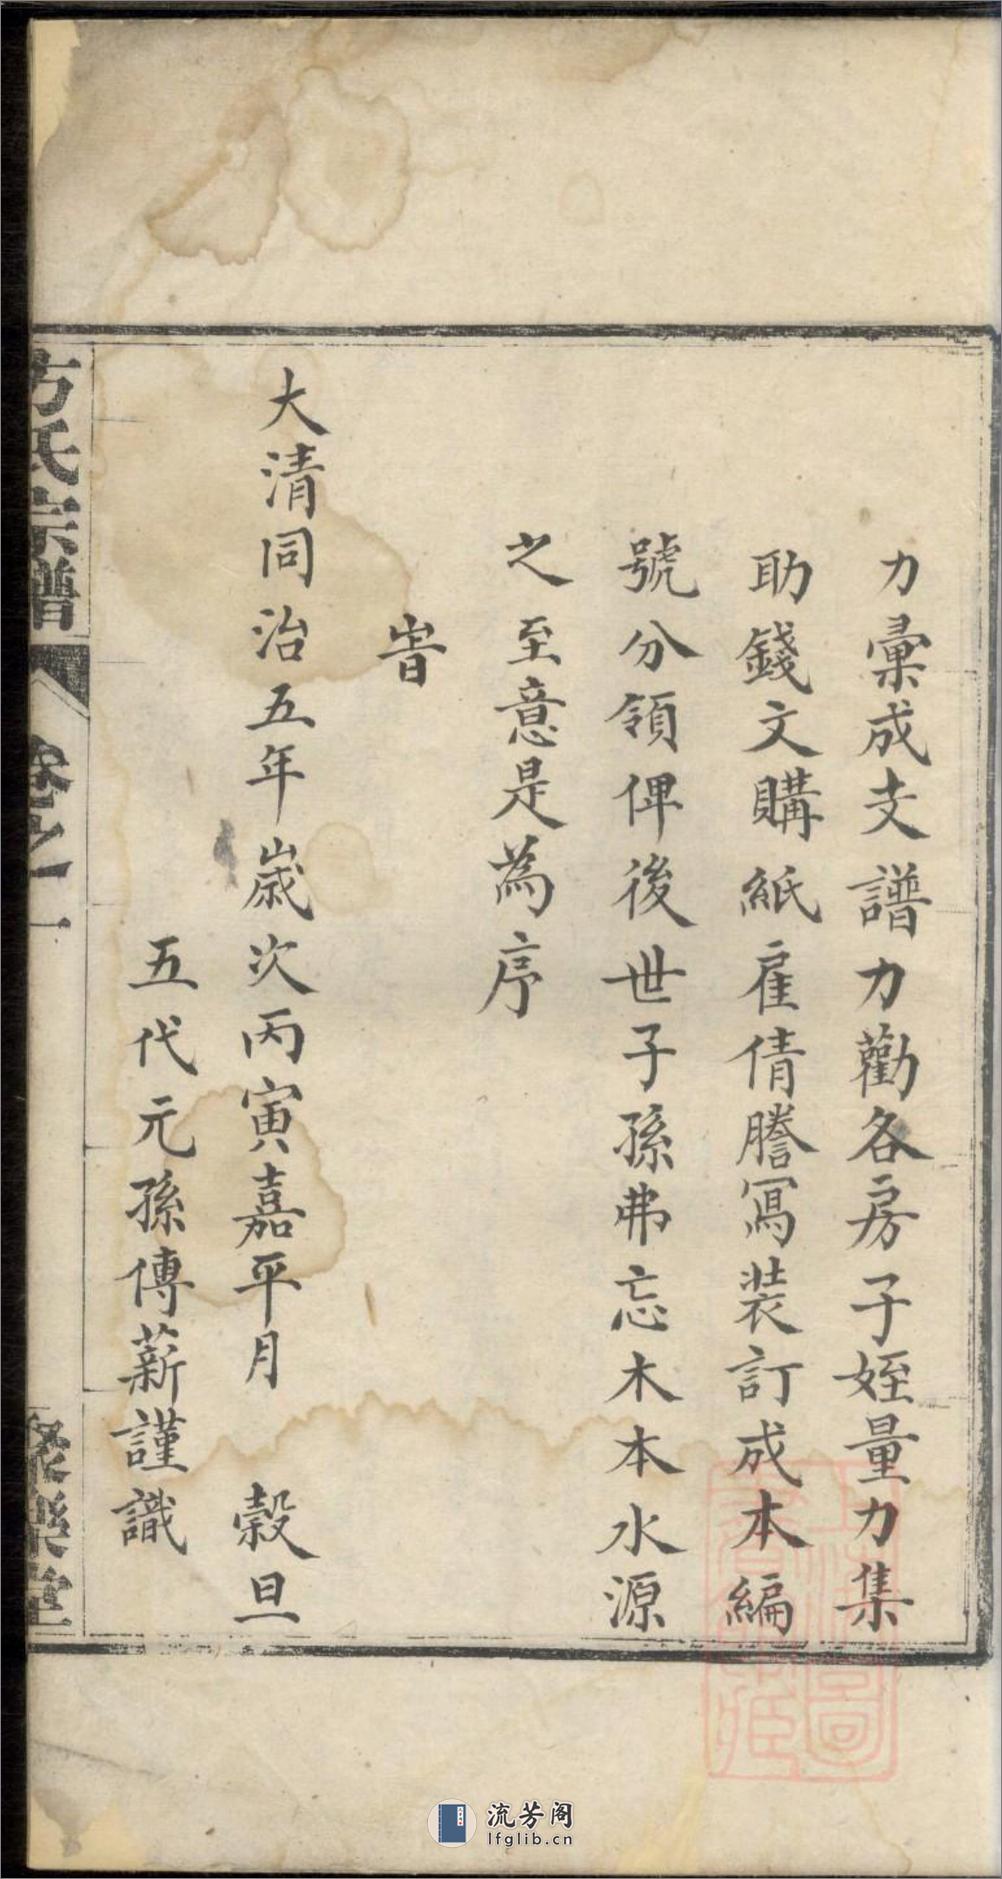 力彚成支譜力勸各房子姪量力集
助錢文購紙雇倩謄寫装訂成本編
號分領俾後世子孫弗忘木本水源
之至意是為序
旹
大清同治五年歲次丙寅嘉平月 榖旦
五代元孫傳薪謹識
方氏宗譜 卷之一 聚樂堂
流芳阁
lfglib.cn